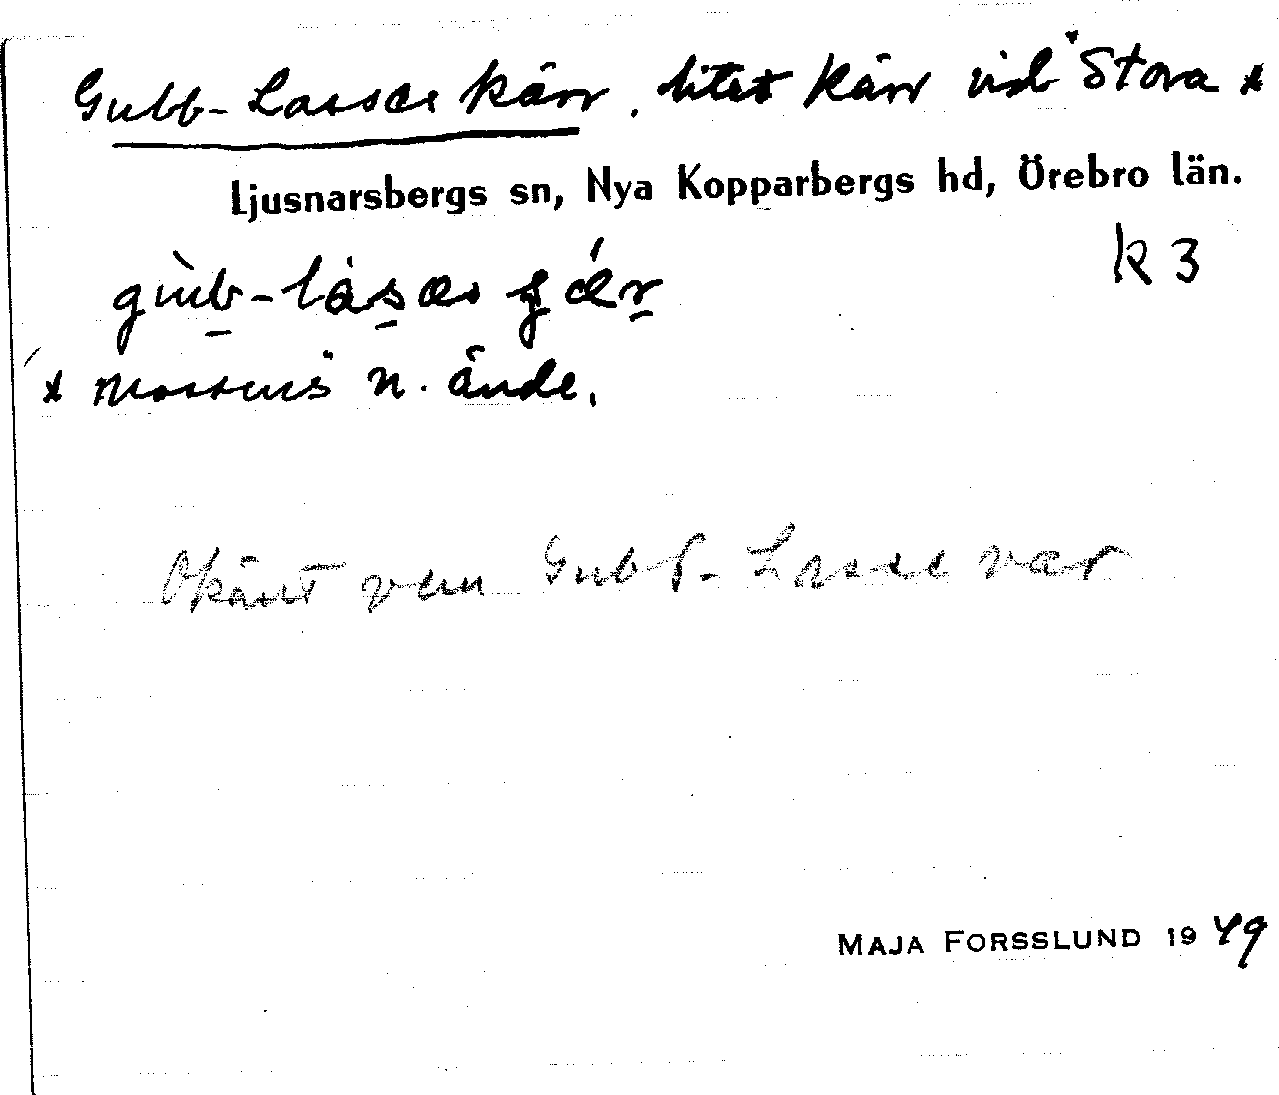 Gubb-Lasses kärr, litet kärr vid "Stora x
Ljusnarsbergs sn, Nya Kopparbergs hd, Örebro län.
k 3
x mossens" n. ände.
Okänt vem Gubb-Lasse var
MAJA FORSSLUND 1949